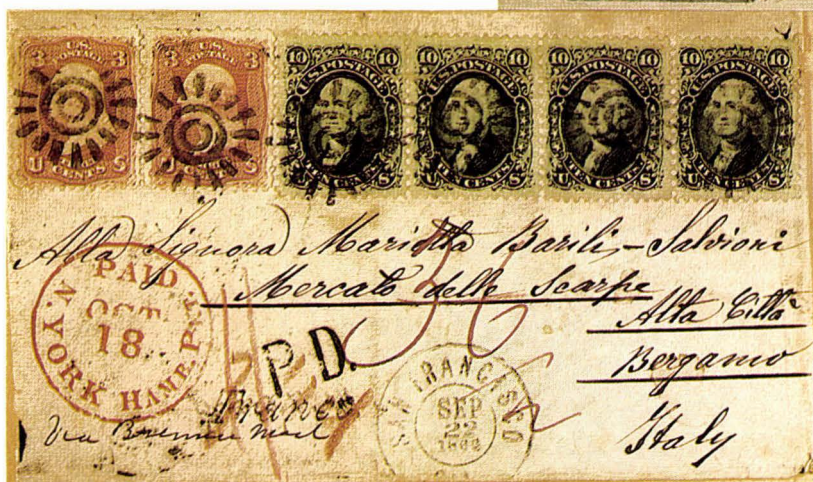 3 U.S. POSTAGE 3
THREE CENTS
U S
3 U.S. POSTAGE 3
U S
10 U.S. POSTAGE 10
U TEN CENTS S
10 U.S. POSTAGE 10
U TEN CENTS S
10 U.S. POSTAGE 10
U TEN CENTS S
10 U.S. POSTAGE 10
U TEN CENTS S
Alla Signora Marietta Barili-Salvioni
Mercato delle Scarpe
Alta Città
Bergamo
Italy
N. YORK HAMB. PKT. PAID
OCT.
18
36
P.D.
Franco
Via Bremen mail
SAN FRANCISCO
SEP
22